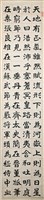 天地有正氣雜然賦流形下則為河嶽上則為日星
於人曰浩然沛乎塞蒼冥皇路當清夷含和吐明庭
時窮節乃見一一垂丹青在齊太史簡在晉董狐筆
在秦張良椎在漢蘇武節為嚴將軍頭為嵇侍中